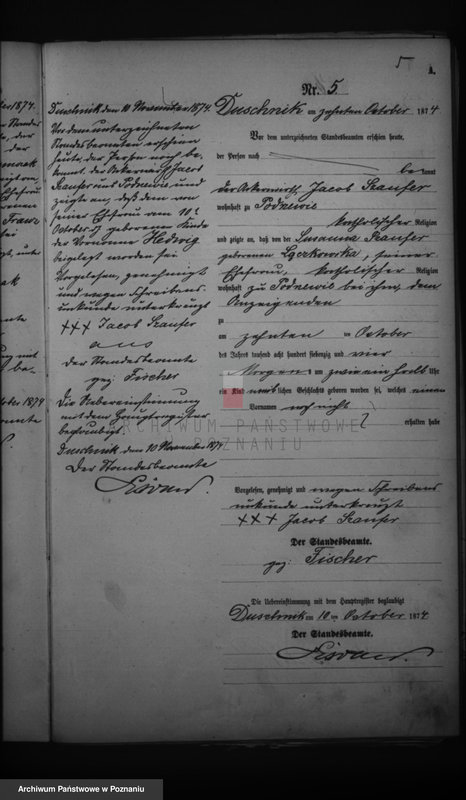 5
A.
Nr. 5
Duschnik am zehnten October 1874
Vor dem unterzeichneten Standesbeamten erschien heute,
der Person nach
be kannt
der Ackerwirth Jacob Szaufer
wohnhaft zu Podrzewie
katholischer Religion
und zeigte an, daß von der Susanna Szaufer
geborenen seiner
Ehefrau, katholischer Religion
wohnhaft zu Podrzewie bei ihm, dem
Anzeigenden
zu
am zehnten ten October
des Jahres tausend acht hundert siebenzig und vier
Morgens um zwei ein halb Uhr
ein Kind weib lichen Geschlechts geboren worden sei, welches einen
Vornamen noch nicht
erhalten habe
Vorgelesen, genehmigt und wegen Schreibens
unkunde unterkreuzt
+++ Jacob Szaufer
Der Standesbeamte.
gez: Fischer
Die Uebereinstimmung mit dem Hauptregister beglaubigt
Duschnik am 10 ten October 1874
Der Standesbeamte.
Duschnik den 10 November 1874.
Vor dem unterzeichneten
Standesbeamten erschien
heute, der Person nach be
kannt der Ackerwirth Jacob
Szaufer aus Podrzewie und
zeigte an, daß dem von
seiner Ehefrau vom 10t
October cr geborenen Kinde
der Vorname Hedwig
beigelegt worden sei
Vorgelesen, genehmigt
und wegen Schreibens
unkunde unterkreuzt
+++ Jacob Szaufer
aus
der Standesbeamte
gez: Fischer
Die Uebereinstimmung
mit dem Hauptregister
beglaubigt.
Duschnik den 10 November 1874
Der Standesbeamte
ARCHIWUM PAŃSTWOWE
W POZNANIU
Archiwum Państwowe w Poznaniu